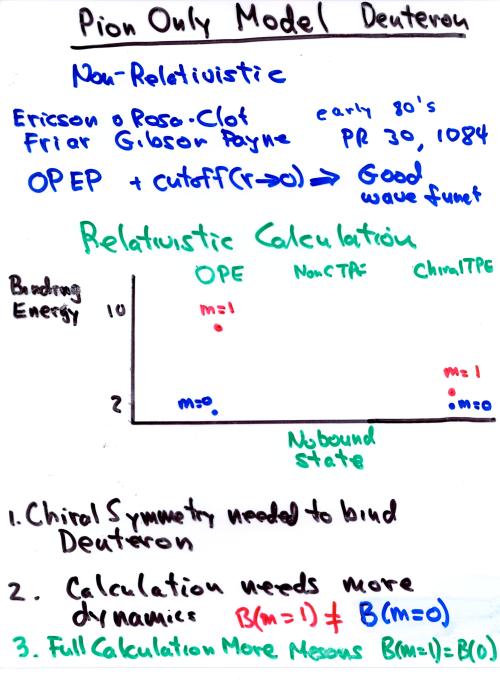 Pion Only Model Deuteron
Non-Relativistic
Ericson & Rosa-Clot early 80's
Friar Gibson Payne PR 30, 1084
OPEP + cutoff(r→0) ⇒ Good
wave funct
Relativistic Calculation
OPE NonCTPE Chiral TPE
Binding
Energy
10
2
m=1
m=0
m=1
m=0
No bound
state
1. Chiral Symmetry needed to bind
Deuteron
2. Calculation needs more
dynamics B(m=1) ≠ B(m=0)
3. Full Calculation More Mesons B(m=1)=B(0)